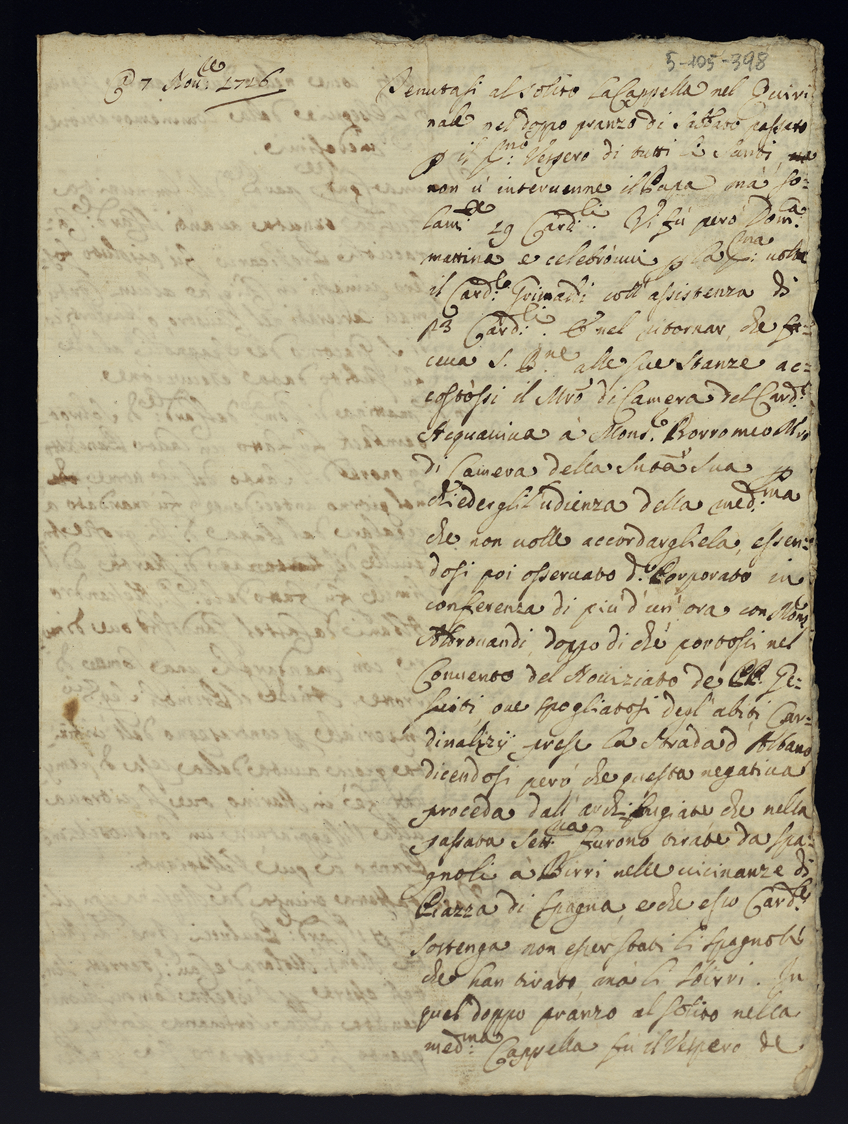 5-105-398
7 Nov.ce 1746
Tenutasi al solito la Cappella nel Quiri
nale nel doppo pranzo di Sabbato passato
p il p.mo Vespero di tutti li Santi,
non ù interuenne il Papa mà so-
lam.te 29 Card.li. Vi fù però Dom.ca
mattina e celebrouui p la p.ma uolta
il Card.le Grimaldi coll'assistenza di
23 Card.li E nel ritornar, che fa-
ceua S. B.ne alle sue stanze ac-
costòssi il Mro di Camera del Card.le
Acquauiua à Mons.r Borromeo Mro
di Camera della Santà Sua p
chiedergli Udienza della med.ma
che non uolle accordargliela, essen-
dosi poi osseruato d.o Porporato in
conferenza di più d'un' ora con Mons.r
Aldrouandi, doppo di che portossi nel
Conuento del Nouiziato de PP. Ge-
suiti oue spogliatosi degl'abiti Car-
dinalizij prese la strada d'Albano
dicendosi però che questa negatiua
proceda dall'archibugiate che nella
passata Sett.na furono tirate da Spa-
gnoli à Birri nelle uicinanze di
Piazza di Spagna, e che esso Card.le
sostenga non esser stati li Spagnoli
che han tirato ma li sbirri. In
quel doppo pranzo al solito nella
med.ma Cappella fu il Vespero de